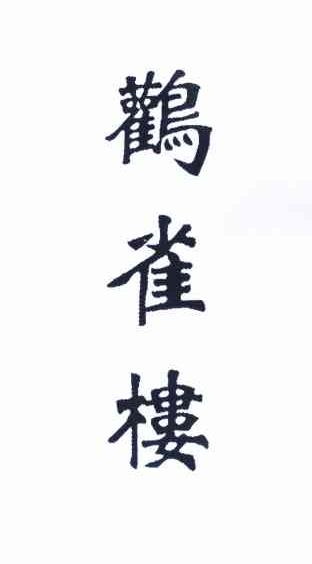 鸛雀樓